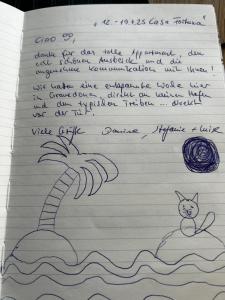 12. - 19.4.25 Casa Fortuna"
Ciao
danke für das tolle Appartment, den
schönen Ausblick und die
angenehme Kommunikation mit Ihnen!
Wir hatten eine entspannte Woche hier
in Gravedona direkt am kleinen Hafen
und dem typischen Treiben ... direkt
vor der Tür.
Viele Grüße Stefanie +